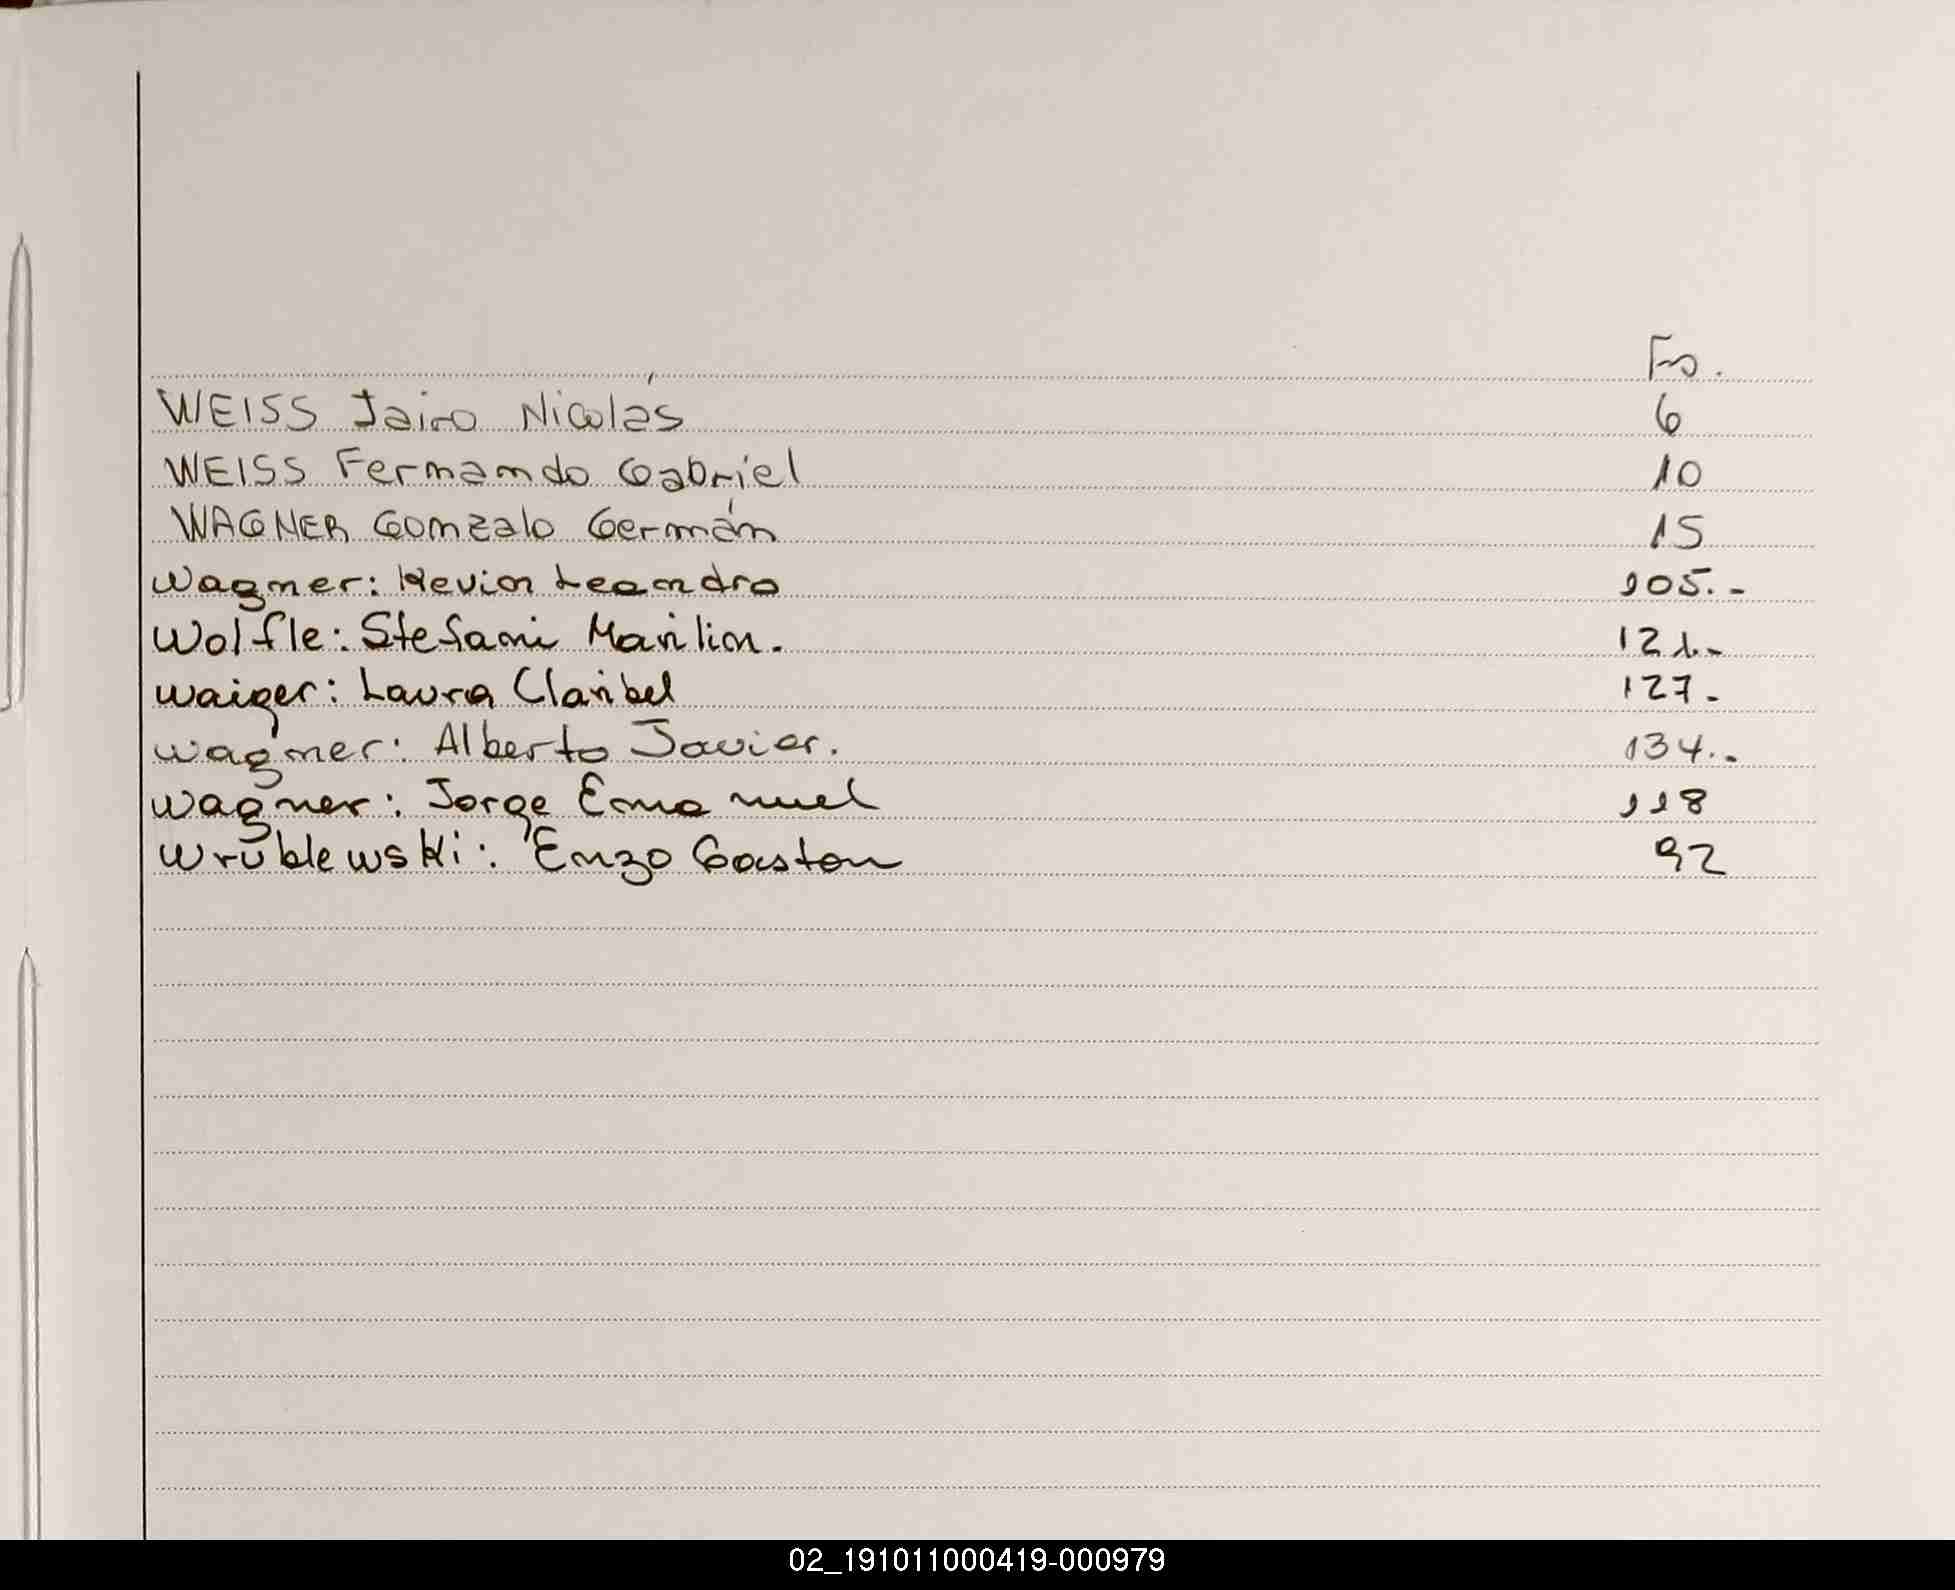 Fo.
WEISS Jairo Nicolás 6
WEISS Fernando Gabriel 10
WAGNER Gonzalo Germán 15
Wagner: Kevin Leandro 105.-
Wolfle: Stefani Marilin. 121.-
Waiger: Laura Claribel 127.-
Wagner: Alberto Javier. 134.-
Wagner: Jorge Emanuel 118
Wrublewski: Enzo Gaston 92
02_191011000419-000979